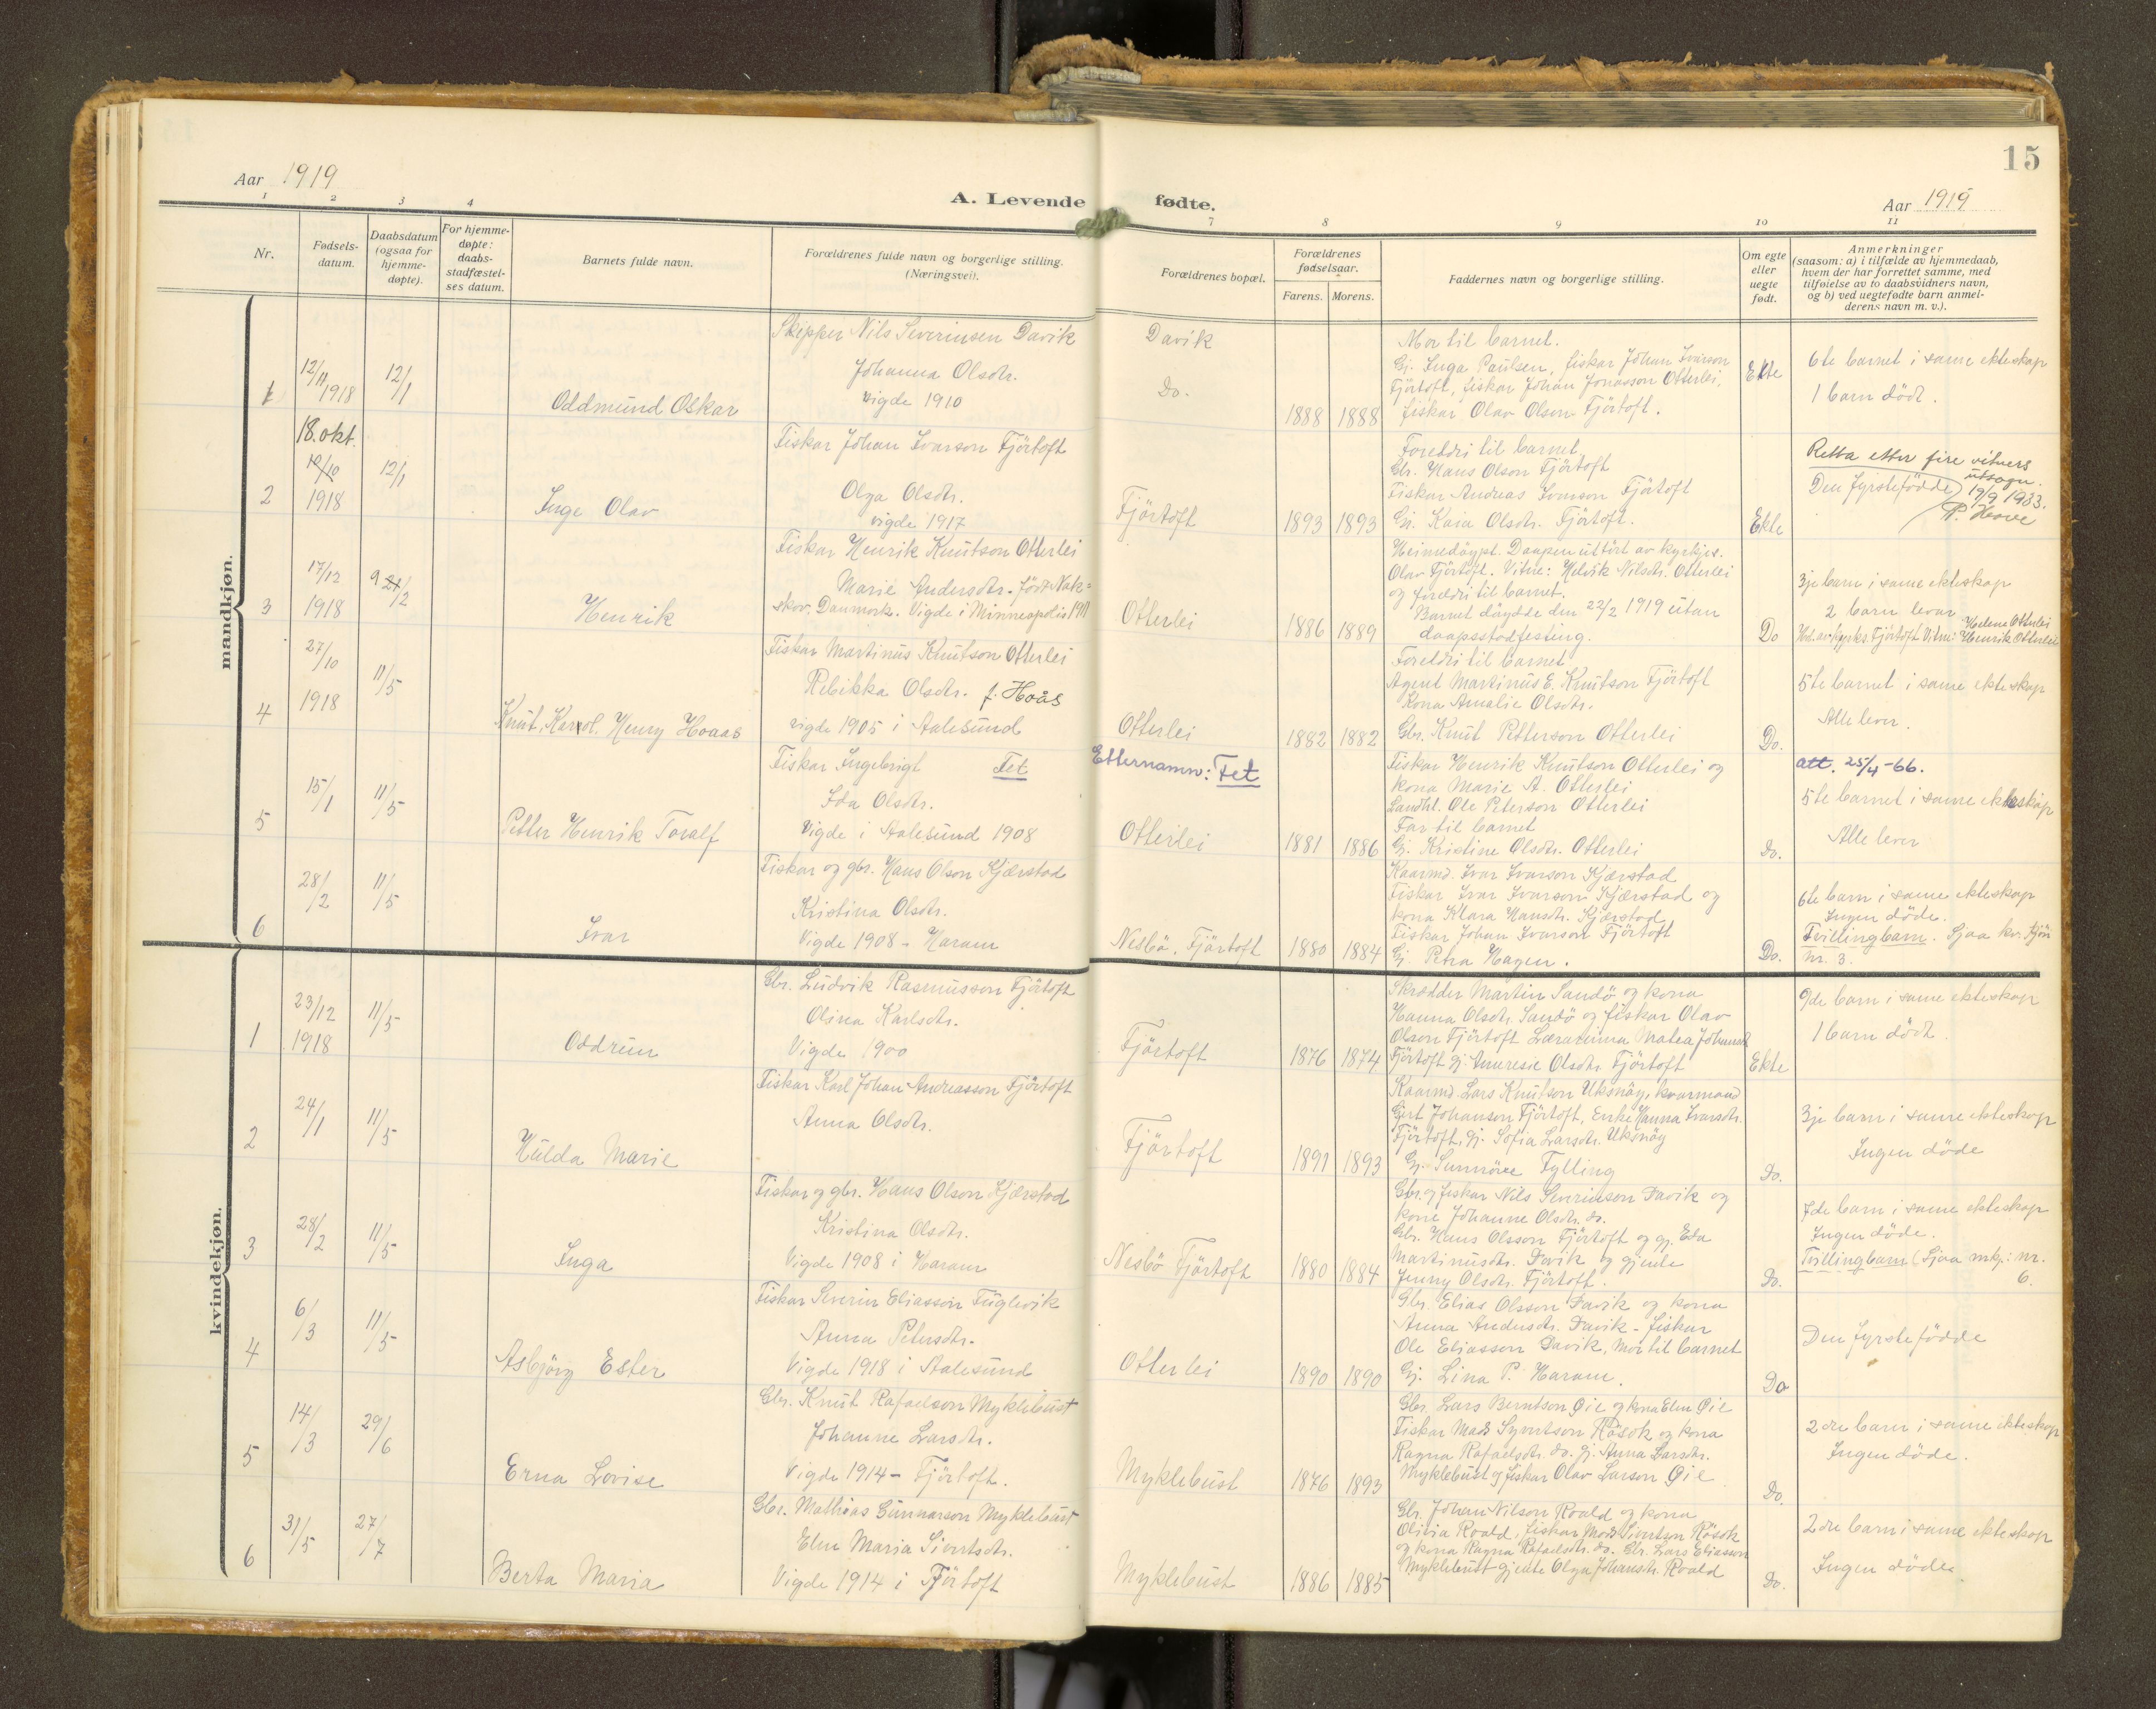 15
Aar 1919
A. Levende fødte.
Aar 1919
1 2 3 4 7 8 9 10 11
Nr.
Fødsels-
datum.
Daabsdatum
(ogsaa for
hjemme-
døpte).
For hjemme-
døpte:
daabs-
stadfæstel-
ses datum.
Barnets fulde navn.
Forældrenes fulde navn og borgerlige stilling.
(Næringsvei).
Forældrenes bopæl.
Forældrenes
fødselsaar.
Farens. Morens.
Faddernes navn og borgerlige stilling.
Om egte
eller
uegte
født.
Anmerkninger
(saasom: a) i tilfælde av hjemmedaab,
hvem der har forrettet samme, med
tilføielse av to daabsvidners navn,
og b) ved uegtefødte barn anmel-
derens navn m. v.).
mandkjøn.
1
12/11 1918
12/1
Oddmund Oskar
Skipper Nils Severinsen Davik
Johanna Olsdtr.
vigde 1910
Davik
Do.
1888 1888
Mor til barnet.
Gj. Inga Paulsen, fiskar Johan Ivarson
Fjörtoft, fiskar Johan Jonasson Otterlei,
fiskar Olav Olson Fjörtoft.
Ekte
6te barnet i same ekteskap
1 barn dödt.
2
18. okt.
10/10
1918
12/1
Inge Olav
Fiskar Johan Ivarson Fjörtoft
Olga Olsdtr.
vigde 1917
Fjörtoft
1893 1893
Foreldri til barnet.
Gbr. Hans Olson Fjörtoft
Fiskar Andreas Ivarson Fjörtoft
Gj. Kaia Olsdtr. Fjörtoft.
Ekte
Retta etter fire vitners
utsogn.
Den fyrstefödde
19/9 1933.
P. Hove
3
17/12
1918
9/2
Henrik
Fiskar Henrik Knutson Otterlei
Marie Andersdtr. födt Nak=
skov. Danmork. Vigde i Minneapolis 1911
Otterlei
1886 1889
Heimedöypt. Daapen utfört av kyrkjes.
Olav Fjörtoft. Vitne: Helvik Nilsdtr. Otterlei
og foreldri til barnet.
Barnet döydde den 22/2 1919 utan
daapsstadfesting.
Do
3je barn i same ekteskap
2 barn levar
Helene Otterlei
Hd. av kyrks. Fjörtoft Vitne: Henrik Otterlei
4
27/10
1918
11/5
Knut. Karol. Henry Hoaas
Fiskar Martinus Knutson Otterlei
Rebikka Olsdtr. f. Hoås
vigde 1905 i Aalesund
Otterlei
1882 1882
Foreldri til barnet.
Agent Martinus E. Knutson Fjörtoft
Kona Amalie Olsdtr.
Gbr. Knut Petterson Otterlei
Do.
5te barnet i same ekteskap
Alle lever.
5
15/1
11/5
Petter Henrik Toralf
Fiskar Ingebrigt Fet
Ida Olsdtr.
Vigde i Aalesund 1908
Etternamn: Fet
Otterlei
1881 1886
Fiskar Henrik Knutson Otterlei og
kona Marie A. Otterlei
Landhl. Ole Peterson Otterlei
Far til barnet
Gj. Kristine Olsdtr. Otterlei
Do.
att. 25/4-66.
5te barnet i same ekteskap
Alle lever
6
28/2
11/5
Ivar
Fiskar og gbr. Hans Olson Kjærstad
Kristina Olsdtr.
Vigde 1908 - Haram
Nesbö. Fjörtoft
1880 1884
Kaarmd. Ivar Ivarson Kjærstad
Fiskar Ivar Ivarson Kjærstad og
kona Klara Hansdtr. Kjærstad
Fiskar Johan Ivarson Fjörtoft
Gj. Petra Hagen.
Do.
6te barn i same ekteskap
Ingen döde.
Tvillingbarn. Sjaa kv. kjön
nr. 3.
kvindekjøn.
1
23/12
1918
11/5
Oddrun
Gbr. Ludvik Rasmusson Fjörtoft
Olina Karlsdtr.
Vigde 1900
Fjörtoft
1876 1874
Skrædder Martin Sandö og kona
Hanna Olsdtr. Sandö og fiskar Olav
Olson Fjörtoft Lærarinna Matea Johansdt
Fjörtoft gj. Ameresie Olsdtr. Fjörtoft
Ekte
9de barn i same ekteskap
1 barn dödt.
2
24/1
11/5
Hulda Marie
Fiskar Karl Johan Andreasson Fjörtoft
Anna Olsdtr.
Fjörtoft
1891 1893
Kaarmd. Lars Knutson Uksnöy, kvarmand
Gjert Johanson Fjörtoft, Enke Hanna Ivarsdtr.
Fjörtoft, Gj. Sofia Larsdtr. Uksnöy
Gj. Sunnöve Fylling
Do.
3je barn i same ekteskap
Ingen döde
3
28/2
11/5
Inga
Fiskar og gbr. Hans Olson Kjærstad
Kristina Olsdtr.
Vigde 1908 i Haram
Nesbö Fjörtoft
1880 1884
Gbr. og fiskar Nils Severinson Davik og
kone Johanne Olsdtr. do.
Gbr. Hans Olsson Fjörtoft og gj. Eda
Martinusdtr. Davik og gjente
Jenny Olsdtr. Fjörtoft.
Do.
7de barn i same ekteskap
Ingen döde.
Tvillingbarn (Sjaa mkj: nr.
6.
4
6/3
11/5
Asbjörg Ester
Fiskar Severin Eliasson Fuglevik
Anna Petersdtr.
Vigde 1918 i Aalesund
Otterlei
1890 1890
Gbr. Elias Olsson Davik og kona
Anna Andersdtr. Davik - fiskar
Ole Eliasson Davik, Mor til barnet
Gj. Lina P. Haram.
Do
Den fyrstefödde
5
14/3
29/6
Erna Lovise
Gbr. Knut Rafaelson Myklebust
Johanne Larsdtr.
Vigde 1914 - Fjörtoft.
Myklebust
1876 1893
Gbr. Lars Berntson Øie og kona Elen Øie
Fiskar Mads Syvertson Røsok og kona
Ragna Rafaelsdtr. do. gj. Anna Larsdtr.
Myklebust og fiskar Olav Larson Øie
Do.
2dre barn i same ekteskap
Ingen döde.
6
31/5
27/7
Berta Maria
Gbr. Mathias Gunnarson Myklebust
Elen Maria Sivertsdtr.
Vigde 1914 i Fjörtoft
Myklebust
1886 1885
Gbr. Johan Nilson Roald og kona
Olivia Roald, fiskar Mads Sivertson Røsok
og kona Ragna Rafaelsdtr. do. Gbr. Lars Eliasson
Myklebust gjente Olga Johansdtr. Roald
Do.
2dre barn i same ekteskap
Ingen döde.